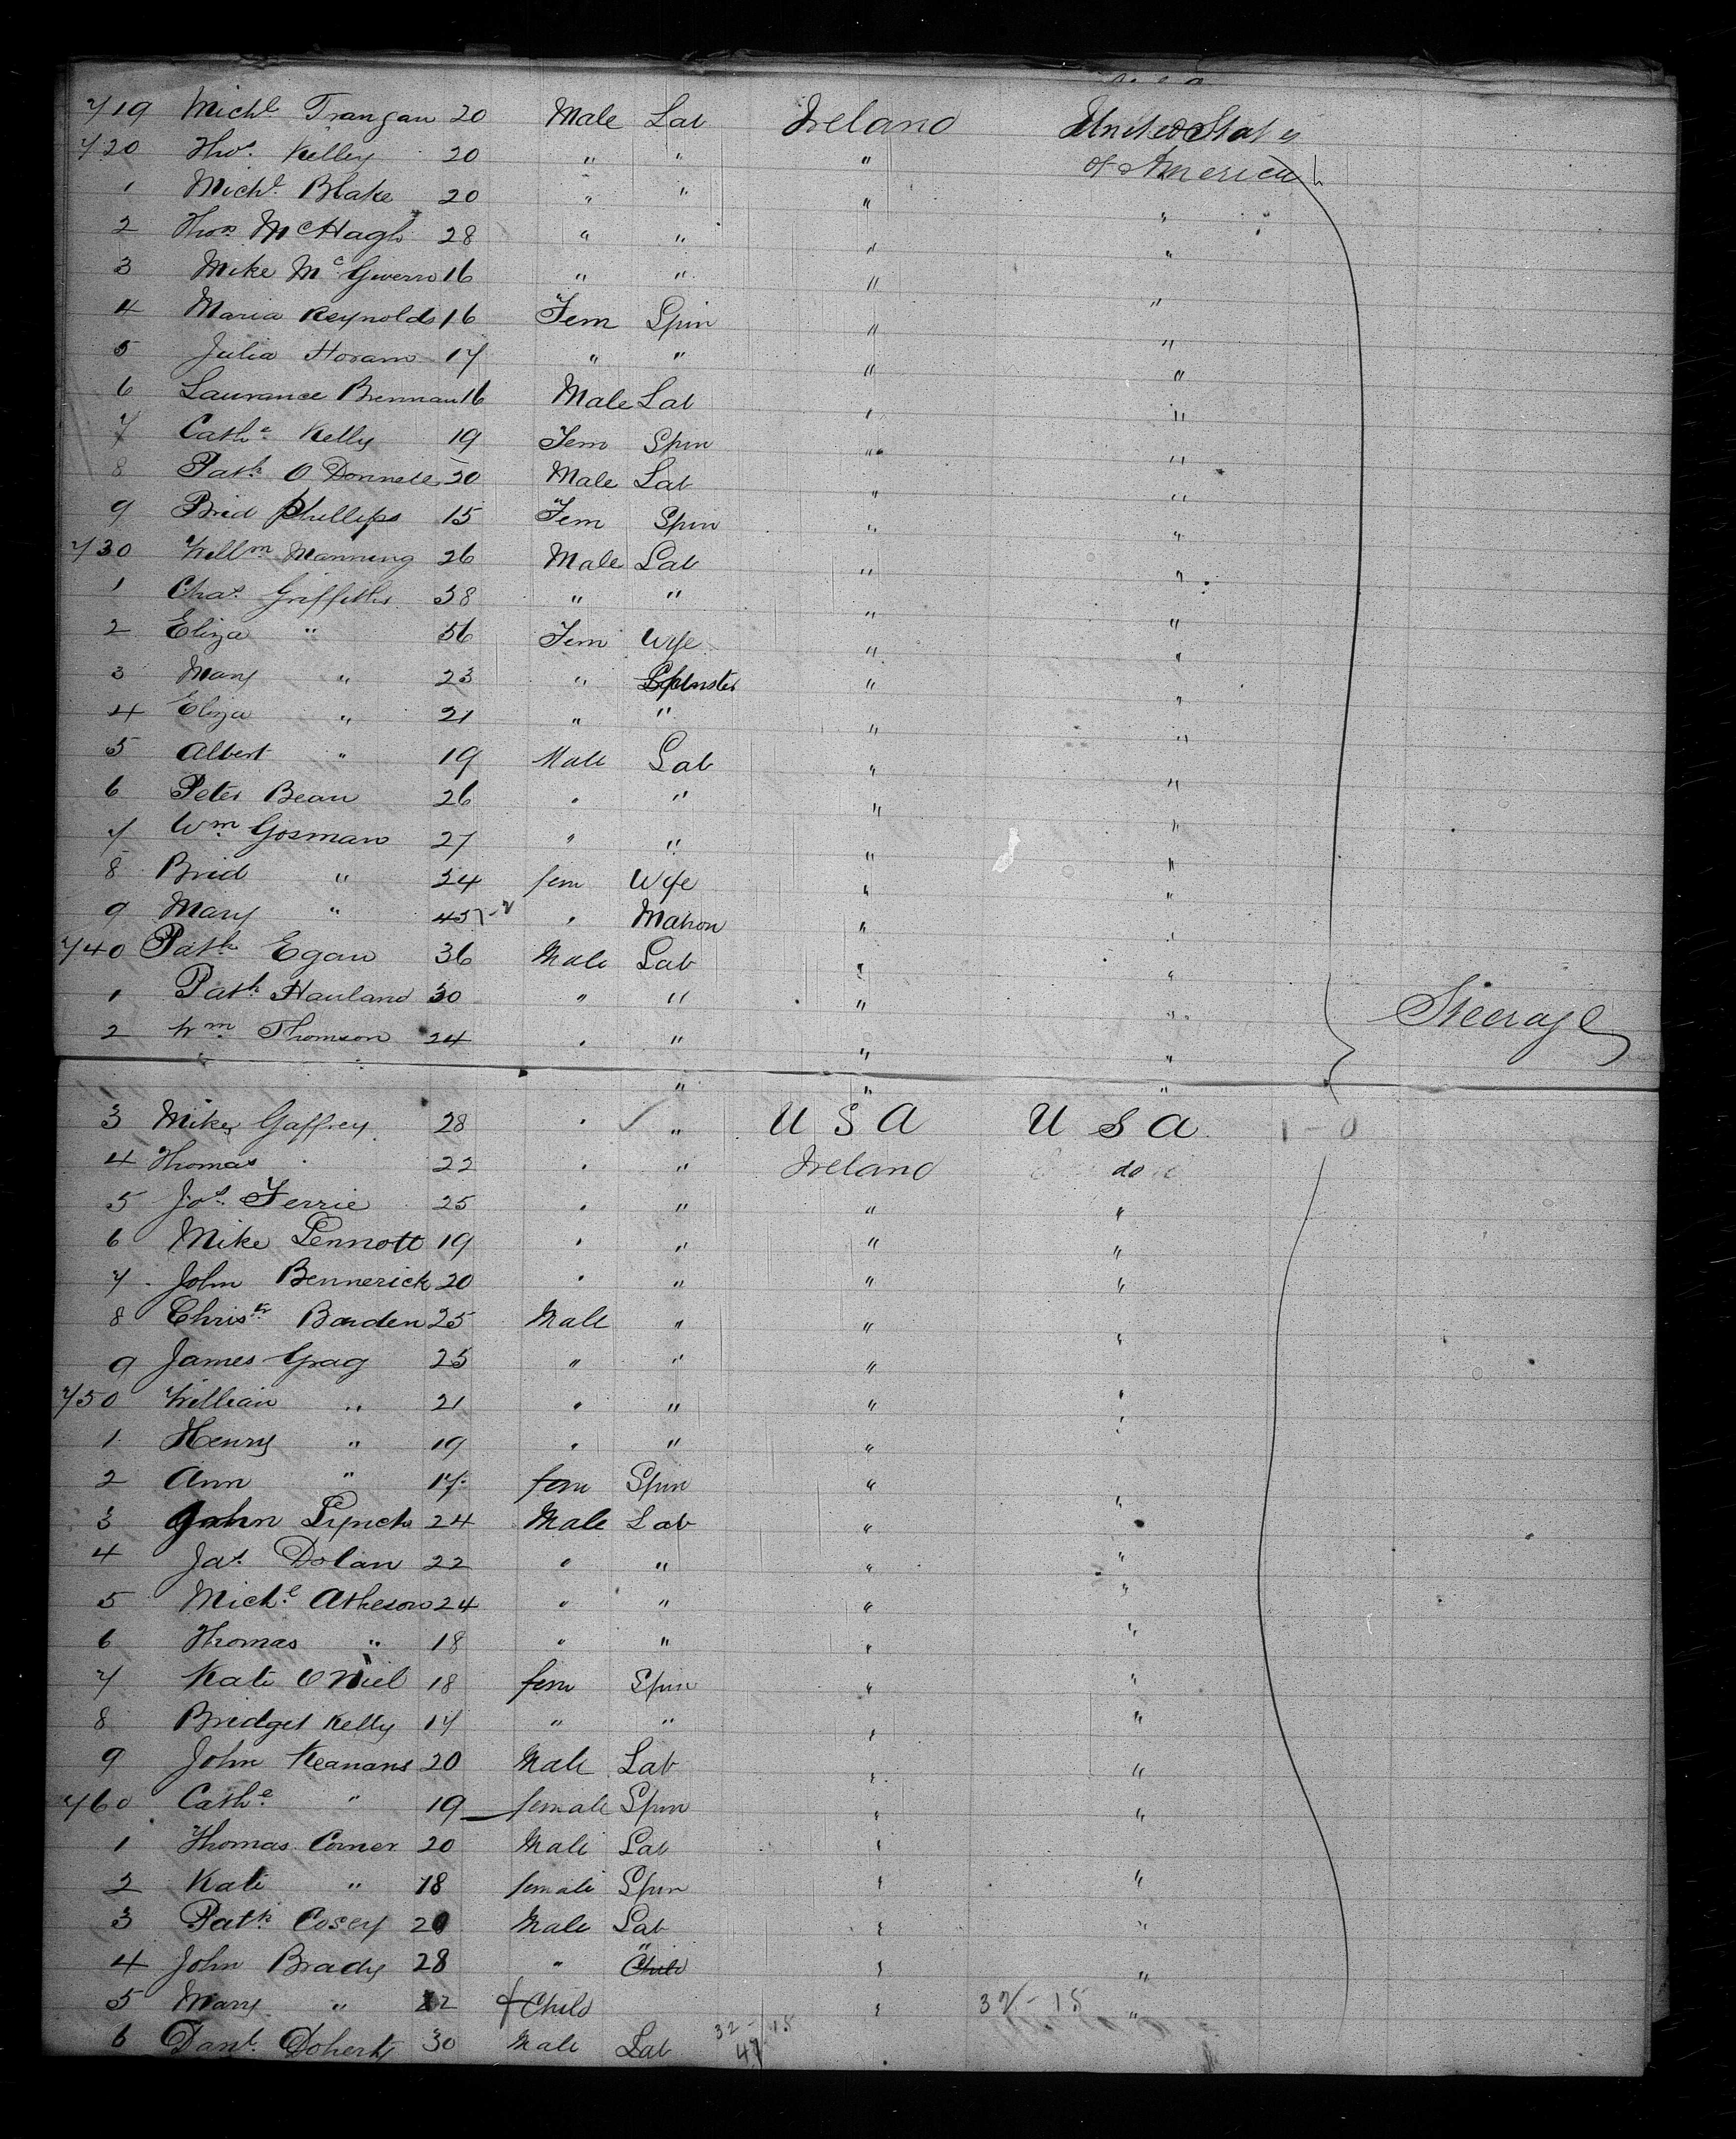 719 Michl Trangan 20 Male Lab Ireland United States
720 Thos. Kelley 20 " " " of America
1 Michl. Blake 20 " " " "
2 Thos McHagh 28 " " " "
3 Mike Mc Givern 16 " " " "
4 Maria Reynolds 16 Fem Spin " "
5 Julia Horam 17 " " " "
6 Laurance Brennan 16 Male Lab " "
7 Cathe Kelly 19 Fem Spin " "
8 Patk O Donnell 20 Male Lab " "
9 Brid Phillips 15 Fem Spin " "
730 Willm Manning 26 Male Lab " "
1 Chas. Griffiths 38 " " " "
2 Eliza " 56 Fem Wife " "
3 Mary " 23 " Spinster " "
4 Eliza " 21 " " " "
5 Albert " 19 Male Lab " "
6 Peter Bean 26 " " " "
7 Wm Gosman 27 " " " "
8 Brid " 24 fem Wife " "
9 Mary " 45 " Matron " "
740 Patk Egan 36 Male Lab " "
1 Patk Hauland 30 " " " " Steerage
2 Wm Thomson 24 " " " "
" " "
3 Mike Gaffrey 28 " " U S A U S A 1-0
4 Thomas 22 " " Ireland do
5 Jos. Ferrie 25 " " " "
6 Mike Lennott 19 " " " "
7 John Bennerick 20 " " " "
8 Christr Barden 25 Male " " "
9 James Grag 25 " " " "
750 William " 21 " " " "
1 Henry " 19 " " " "
2 Ann " 17 fem Spin "
3 John Lynch 24 Male Lab " "
4 Jas. Dolan 22 " " " "
5 Michl Atheson 24 " " " "
6 Thomas " 18 " " " "
7 Kate O Niel 18 fem Spin " "
8 Bridget Kelly 17 " " " "
9 John Keanans 20 Male Lab " "
760 Cathe " 19 female Spin " "
1 Thomas Comer 20 Male Lab "
2 Kate " 18 female Spin " "
3 Patk Cosey 20 Male Lab " "
4 John Brady 28 " " Child " "
5 Mary " 22 f Child " 32-15 "
6 Danl. Doherty 30 Male Lab 32-15
47